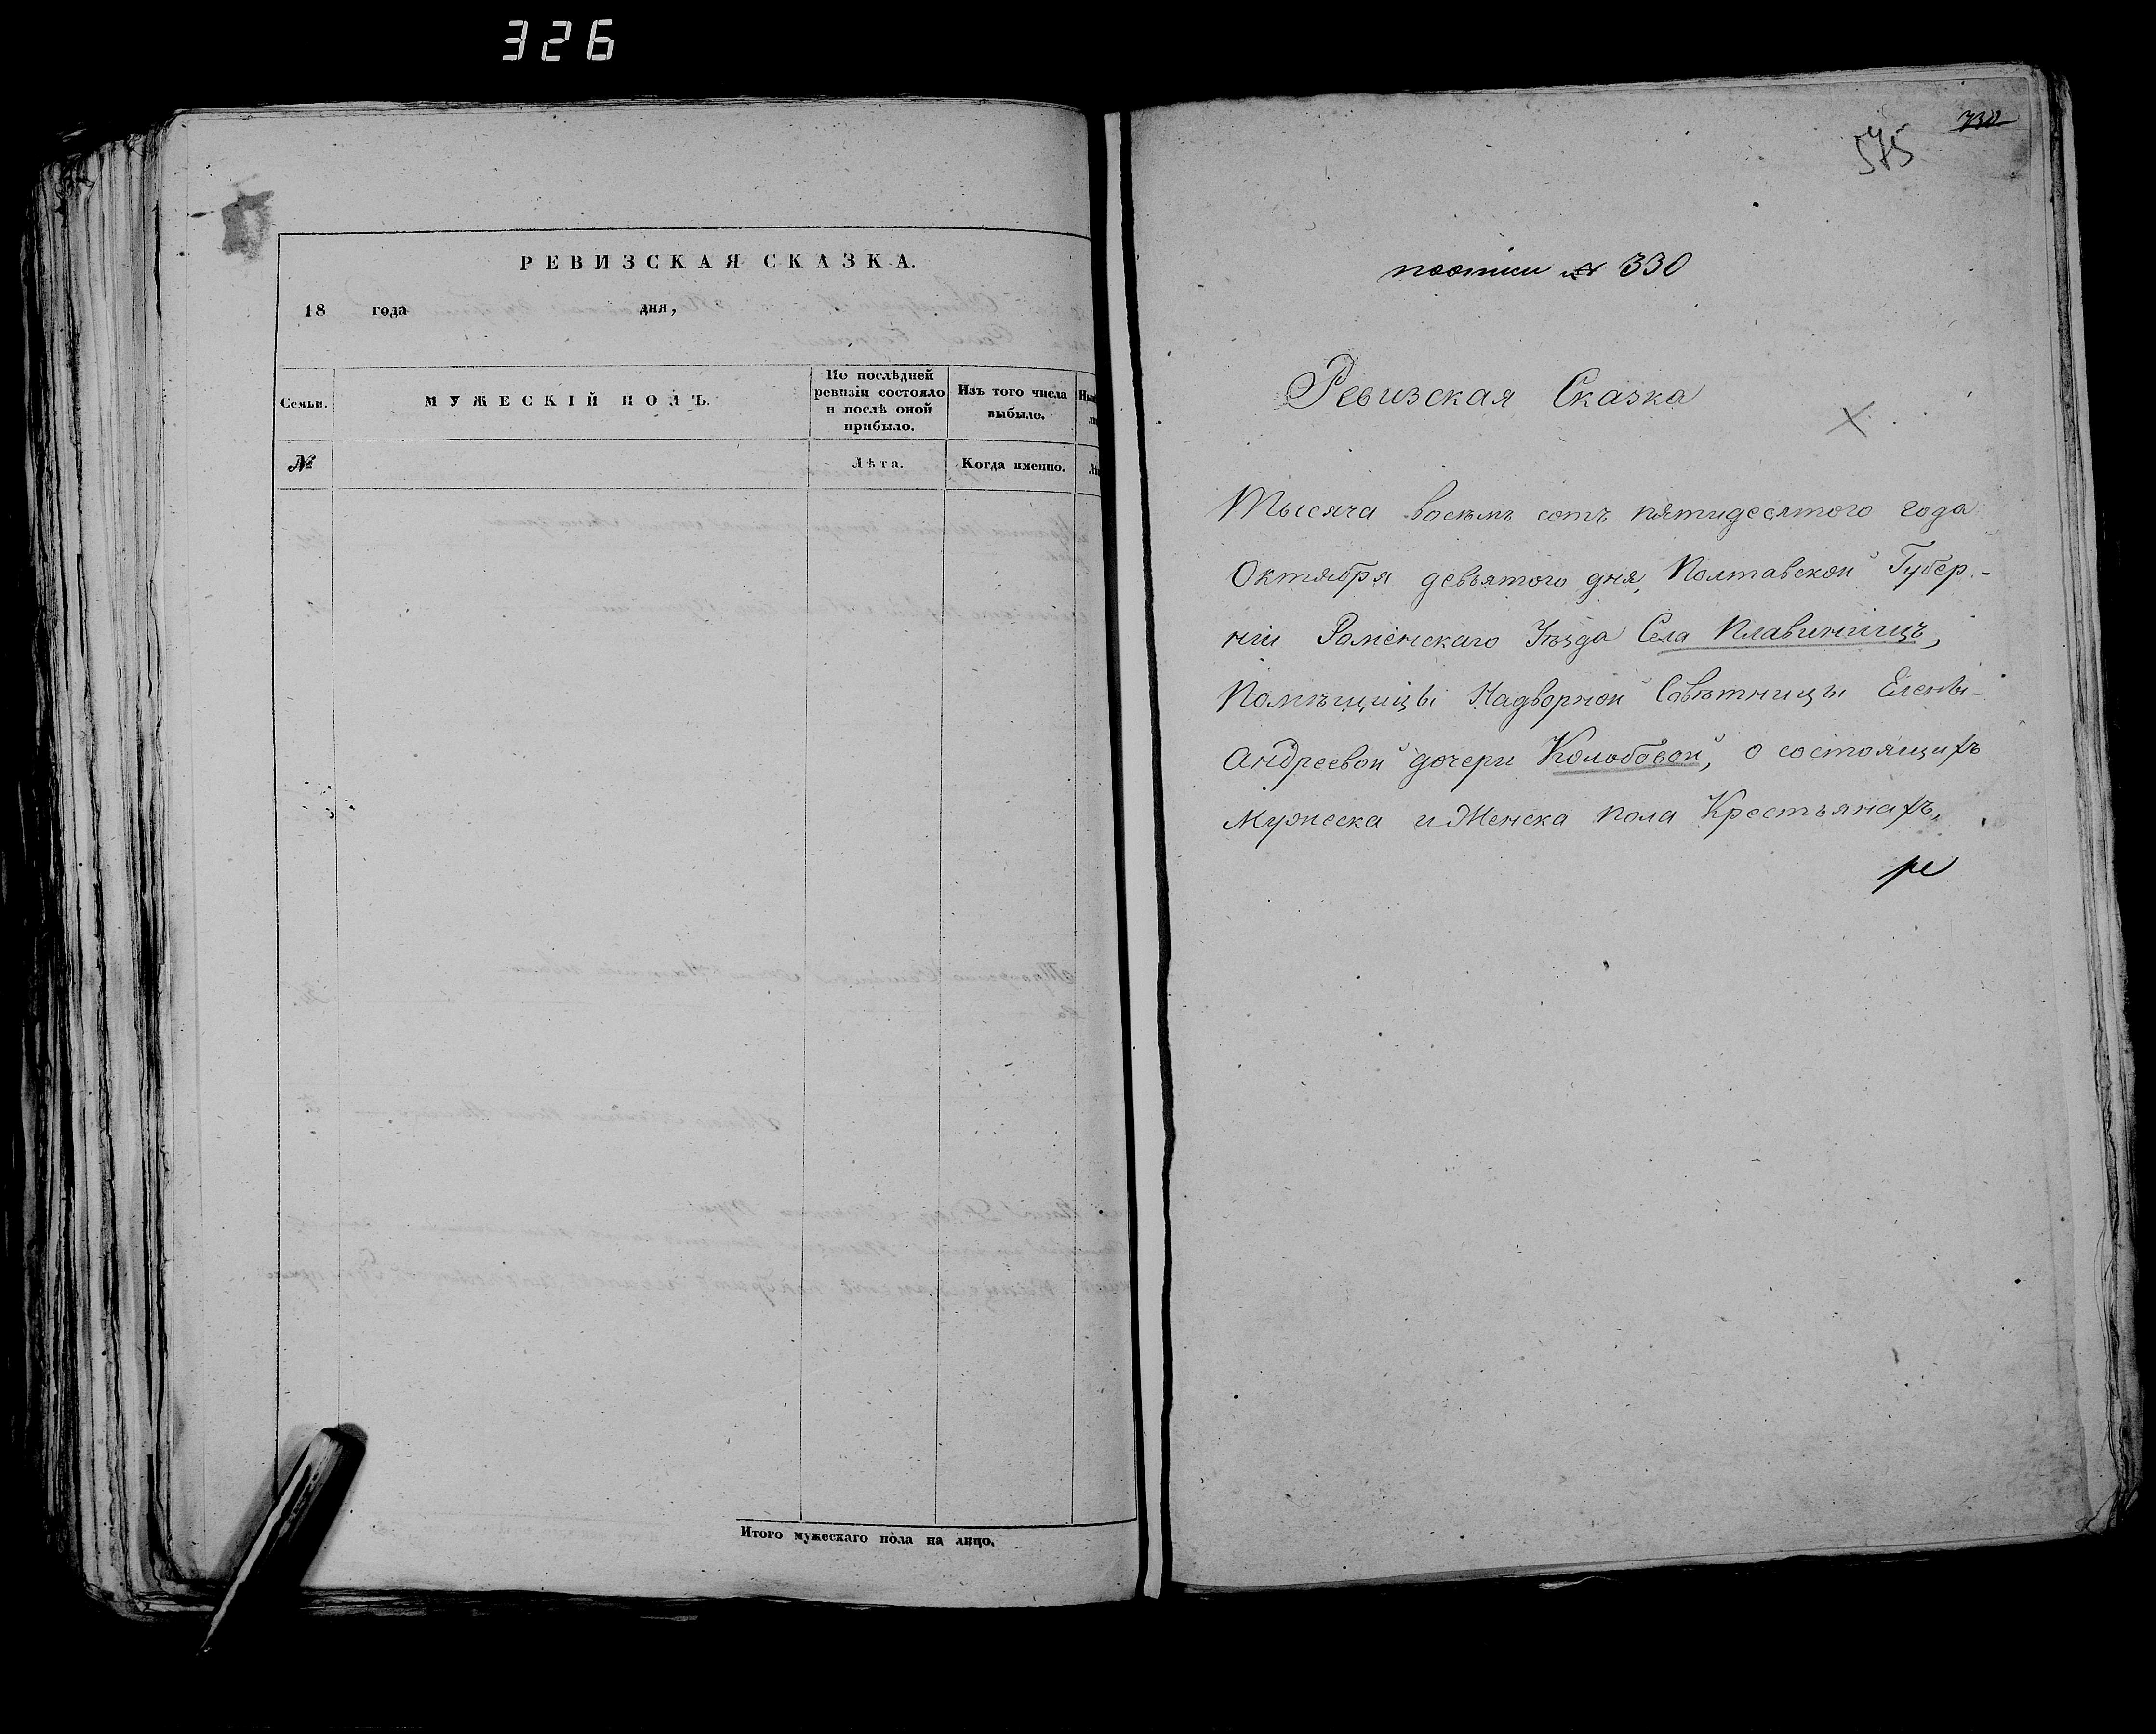 326
РЕВИЗСКАЯ СКАЗКА.
18 года дня,
Семьи.
МУЖЕСКІЙ ПОЛЪ.
По послѣдней
ревизіи состояло
и послѣ оной
прибыло.
Изъ того числа
выбыло.
№
Лѣта.
Когда именно.
Итого мужескаго пола на лицо.
730
575
№ 330
Ревизская Сказка
Тысяча восѣмъ сотъ пятидесятого года
Октября девьятого дня, Полтавской Губер-
ніи Роменскаго Уѣзда Села Плавинищъ,
Помѣщицы Надворной Совѣтницы Елены
Андреевой дочери Колюбовой, о состоящихъ
Мужеска и Женска пола Крестьянахъ.